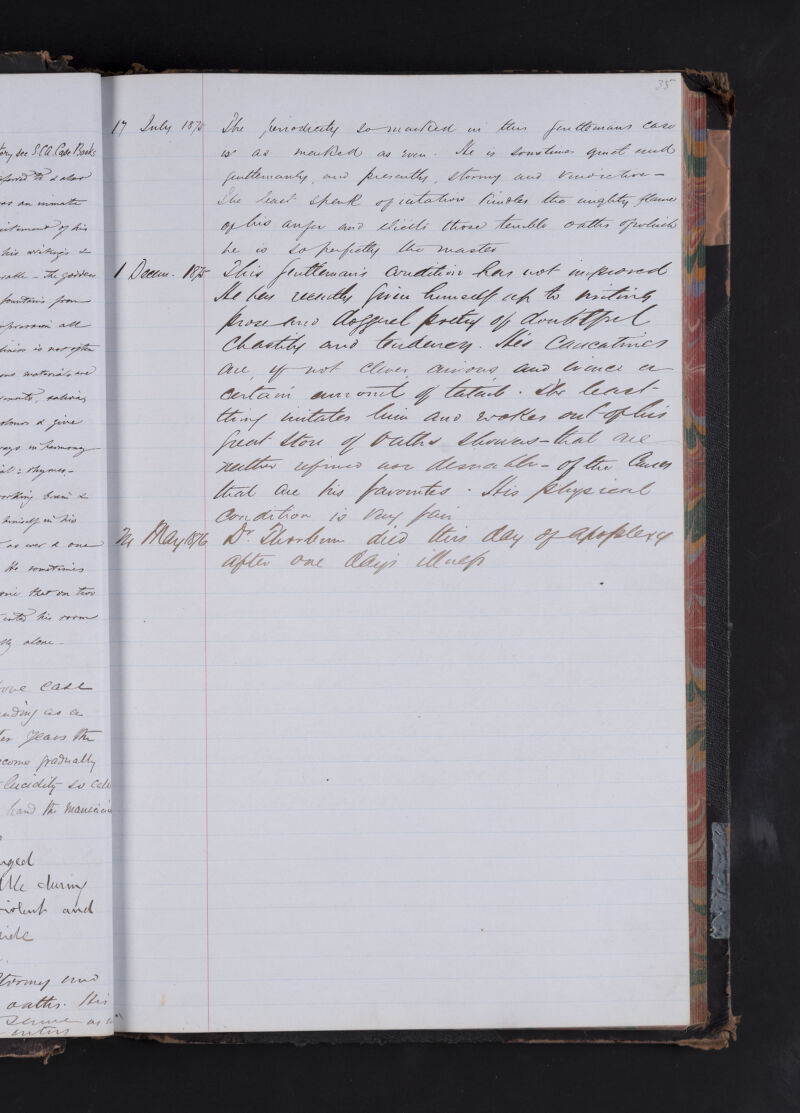 35
tory see S.C.A. Case Books
referred to & also
was an inmate
excitement of his
his writings &
rable - The goddess
fountain from
expression all
is not often
ous materials are
saliva,
colours & give
ways in harmony
rhymes -
working brain &
himself in his
as ever & one
He sometimes
one that on two
enter his room
lly alone -
above case
ending as a
ter years the
become gradually
lucidity so called
hand the maniacal
nged
ttle during
violent and
side
Stormy and
oaths. His
same as
enters
17 July 1875 The periodicity so marked in this gentlemans case
is as marked as ever. He is sometimes quiet and
gentlemanly, and presently, stormy and vindictive -
The least spark of irritation kindles the mighty flames
of his anger and elicits those terrible oaths of which
he is so perfectly the master
1 Decem. 1875 This gentleman's condition has not improved
He has recently given himself up to writing
prose and doggrel poetry of doubtful
chastity and tendency. His caricatures
are, if not clever, curious and evince a
certain amount of talent. The least
thing irritates him and evokes out of his
great store of oaths showers - that are
neither refined nor desirable - of the ones
that are his favorites. His physical
condition is very fair
May 1876 Dr. Thorburn died this day of apoplexy
after one day's illness